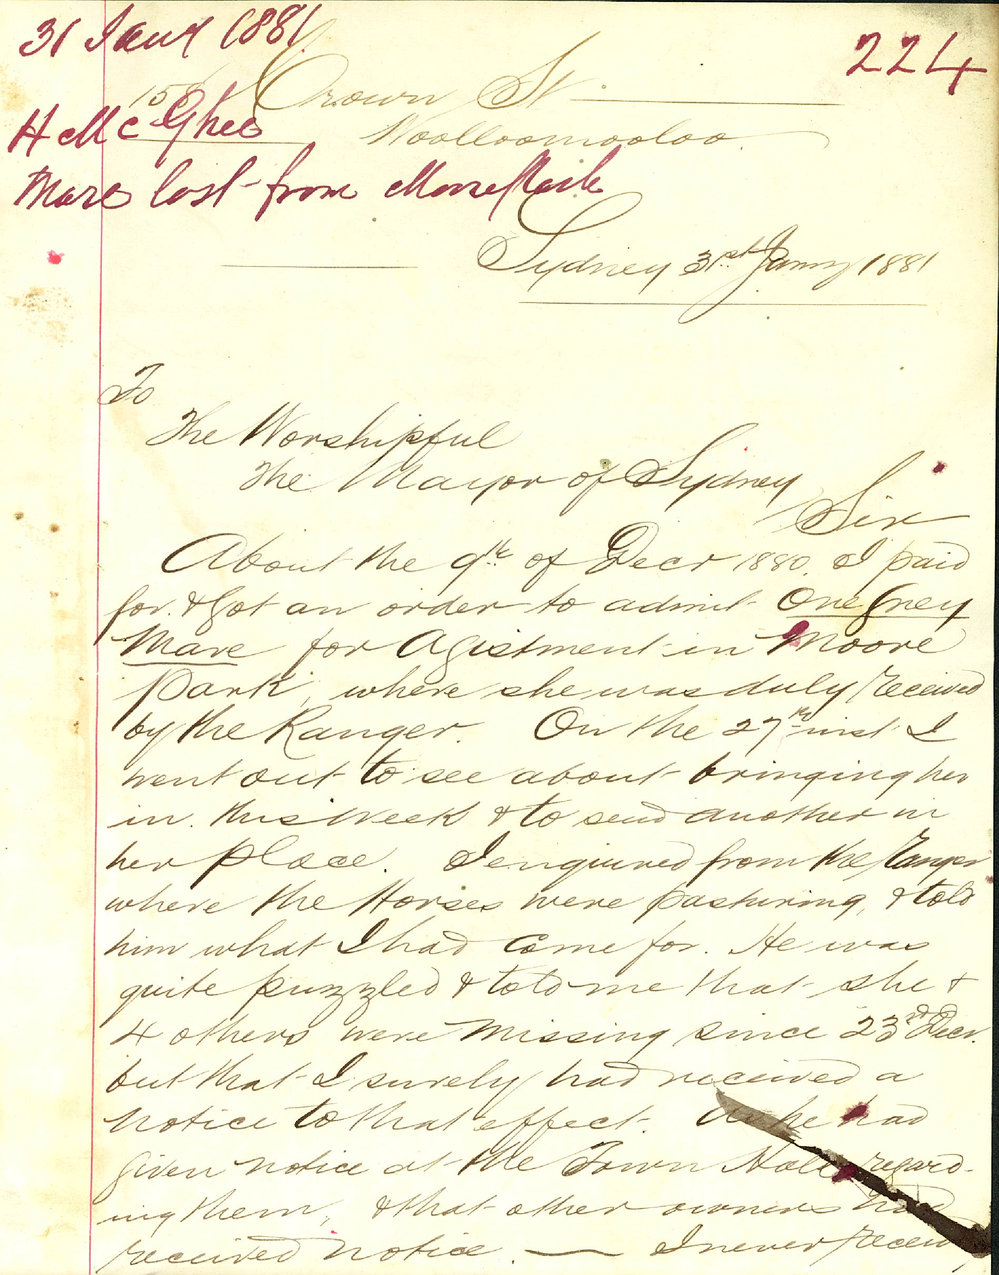 31 Jany 1881
224
156 Crown St
H McGhee
Woolloomooloo.
Mare lost from Moore Park
Sydney 31st Jany 1881
To
The Worshipful
The Mayor of Sydney
Sir
About the 9th of Decr 1880. I paid
for. & Got an order to admit One Grey
Mare for Agistment in Moore
Park, where she was duly received
by the Ranger. On the 27th inst I
went out to see about bringing her
in. this week & to send another in
her place. I enquired from the Ranger
where the Horses were pasturing, & told
him what I had come for. He was
quite puzzled & told me that she &
4 others were missing since 23rd Decr.
but that I surely had received a
notice to that effect. As he had
given notice at the Town Hall regard-
ing them, & that other owners had
received notice. — I never receiv